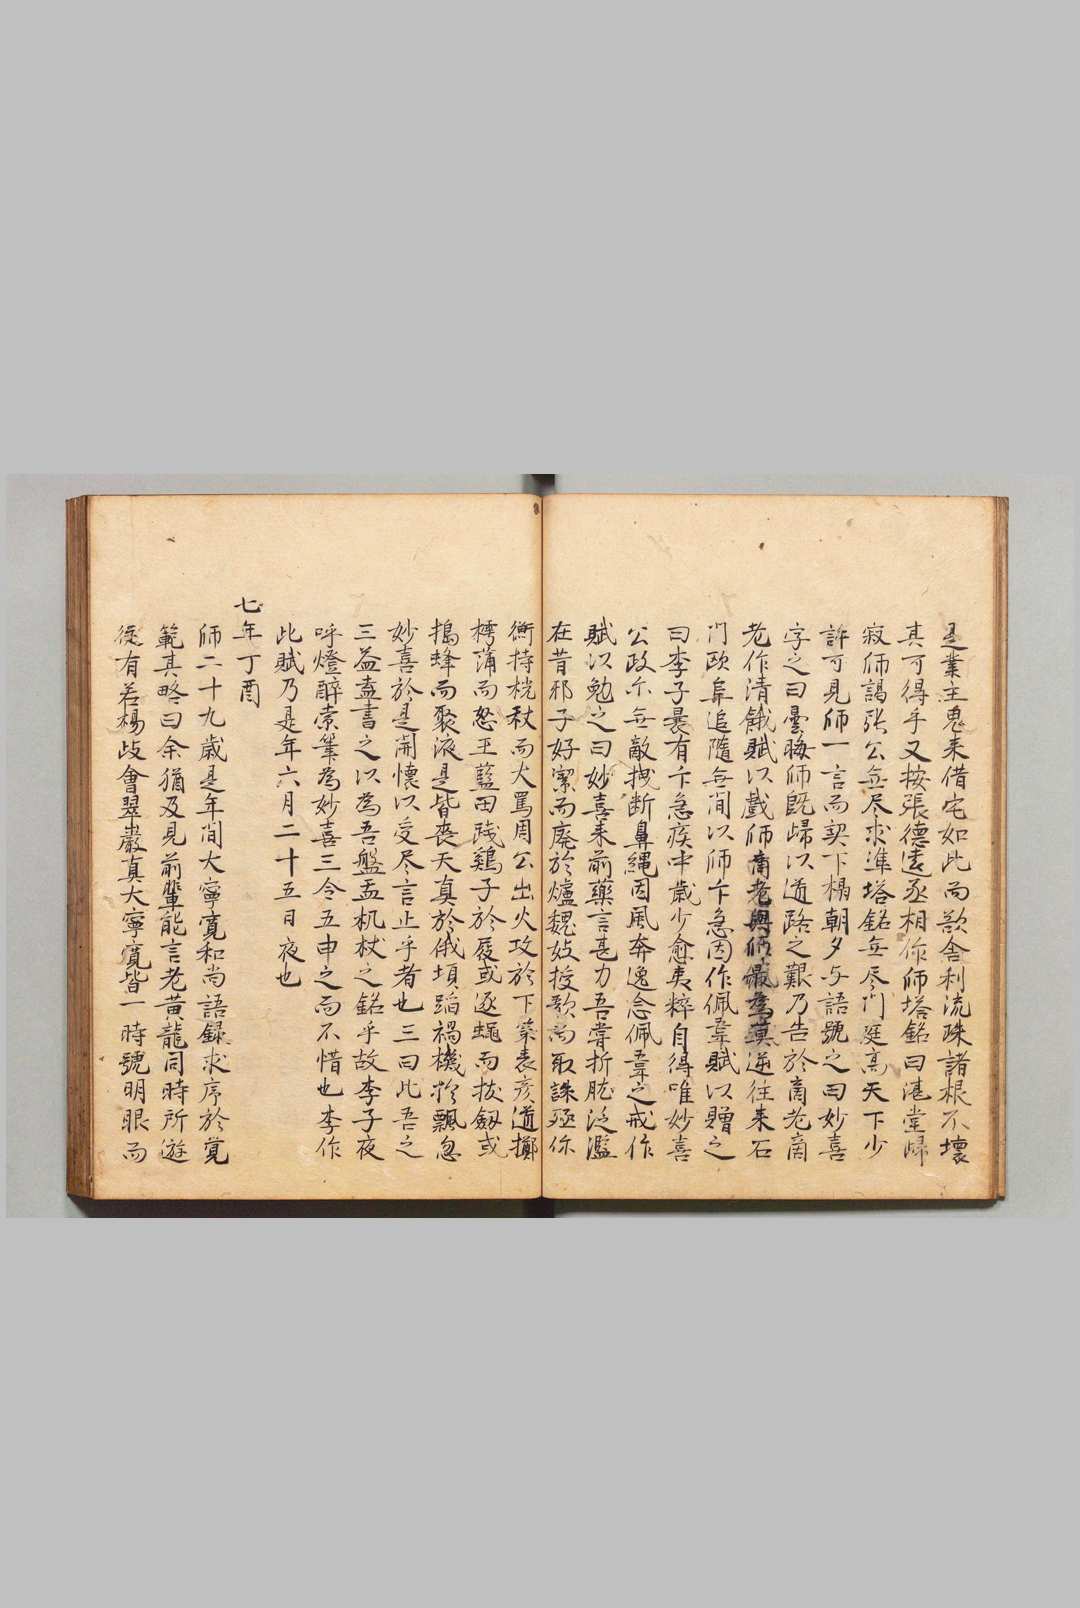 是業主鬼来借宅如此而欲舎利流珠諸根不壊
其可得乎又按張德遠丞相作師塔銘曰湛堂歸
寂師謁張公無尽求準塔銘無尽門庭高天下少
許可見師一言而契下榻朝夕与語號之曰妙喜
字之曰曇晦師既歸以道路之艱乃告於商老商
老作清餓賦以戲師商老與師最為莫逆往来石
門歐阜追隨無間以師卞急因作佩韋賦以贈之
曰李子曩有卞急疾中歳少愈夷粹自得唯妙喜
公政尓無敵拽断鼻縄因風奔逸念佩韋之戒作
賦以勉之曰妙喜来前藥言甚力吾甞折肱泛濫
在昔邪子好潔而廃於爐魏妓授歌而取誅殛
衡持梲杖而大罵周公出火攻於下策袁彦道擲
樗蒲而怒王藍田踐鷄子於屐或逐蠅而抜劔或
搗蜂而聚液是皆喪天真於俄頃蹈禍機於飄忽
妙喜於是開懐以受尽言止乎者也三曰此吾之
三益盍書之以為吾盤盂机杖之銘乎故李子夜
呼燈醉索筆為妙喜三令五申之而不惜也李作
此賦乃是年六月二十五日夜也
七年丁酉
師二十九歳是年間大寧寛和尚語録求序於覚
範其略曰余猶及見前輩能言老黄龍同時所遊
從有若楊岐會翠巖真大寧寛皆一時號明眼而